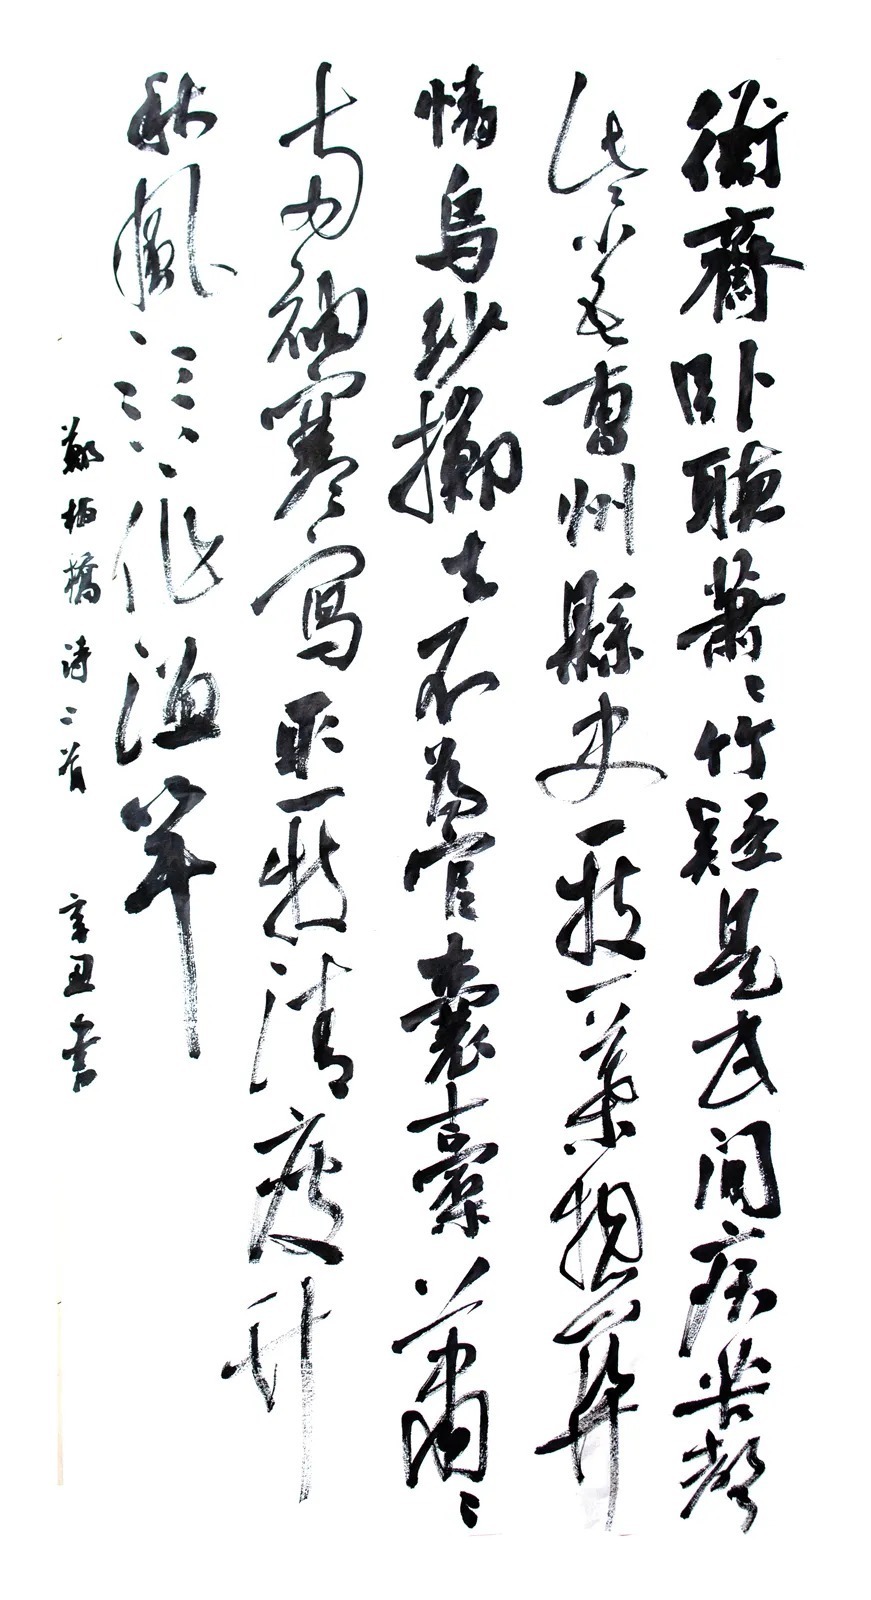 衙齋臥聽蕭〻竹疑是民間疾苦聲
些小吾曹州縣吏一枝一葉總關
情烏紗擲去不為官囊橐蕭〻
兩袖寒寫取一枝清瘦竹
秋風江上作漁竿
鄭板橋詩二首 辛丑書